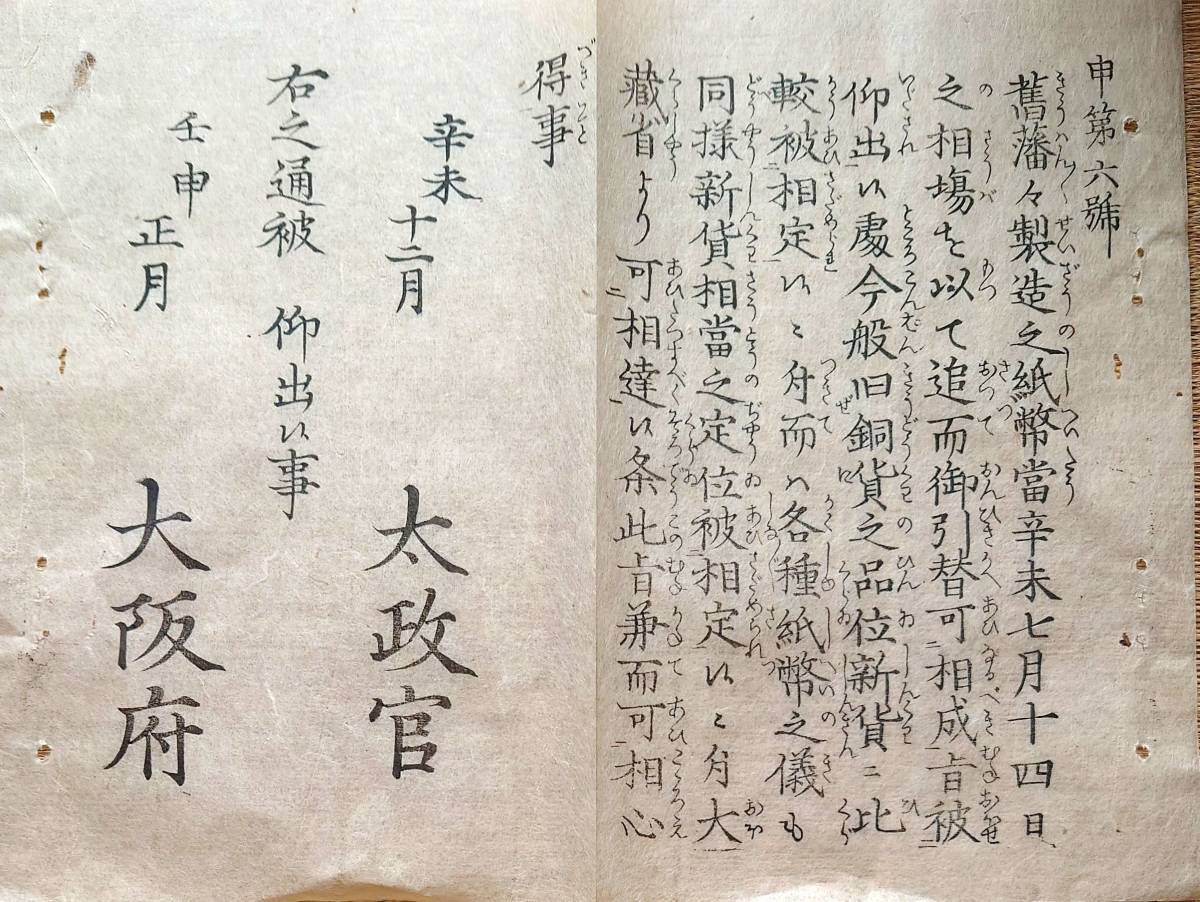 申第六號
舊藩々製造之紙幣當辛未七月十四日
之相塲を以て追而御引替可相成旨被
仰出候處今般旧銅貨之品位新貨ニ比
較被相定候ニ付而ハ各種紙幣之儀も
同様新貨相當之定位被相定候ニ付大
藏省より可相達候条此旨兼而可相心
得事
辛未十二月
太政官
右之通被 仰出候事
壬申正月
大阪府